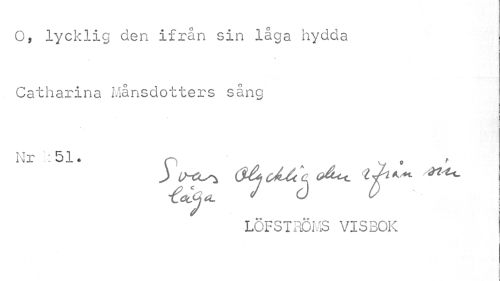 O, lycklig den ifrån sin låga hydda
Catharina Månsdotters sång
Nr 51.
Svar Olycklig den ifrån sin
låga
LÖFSTRÖMS VISBOK